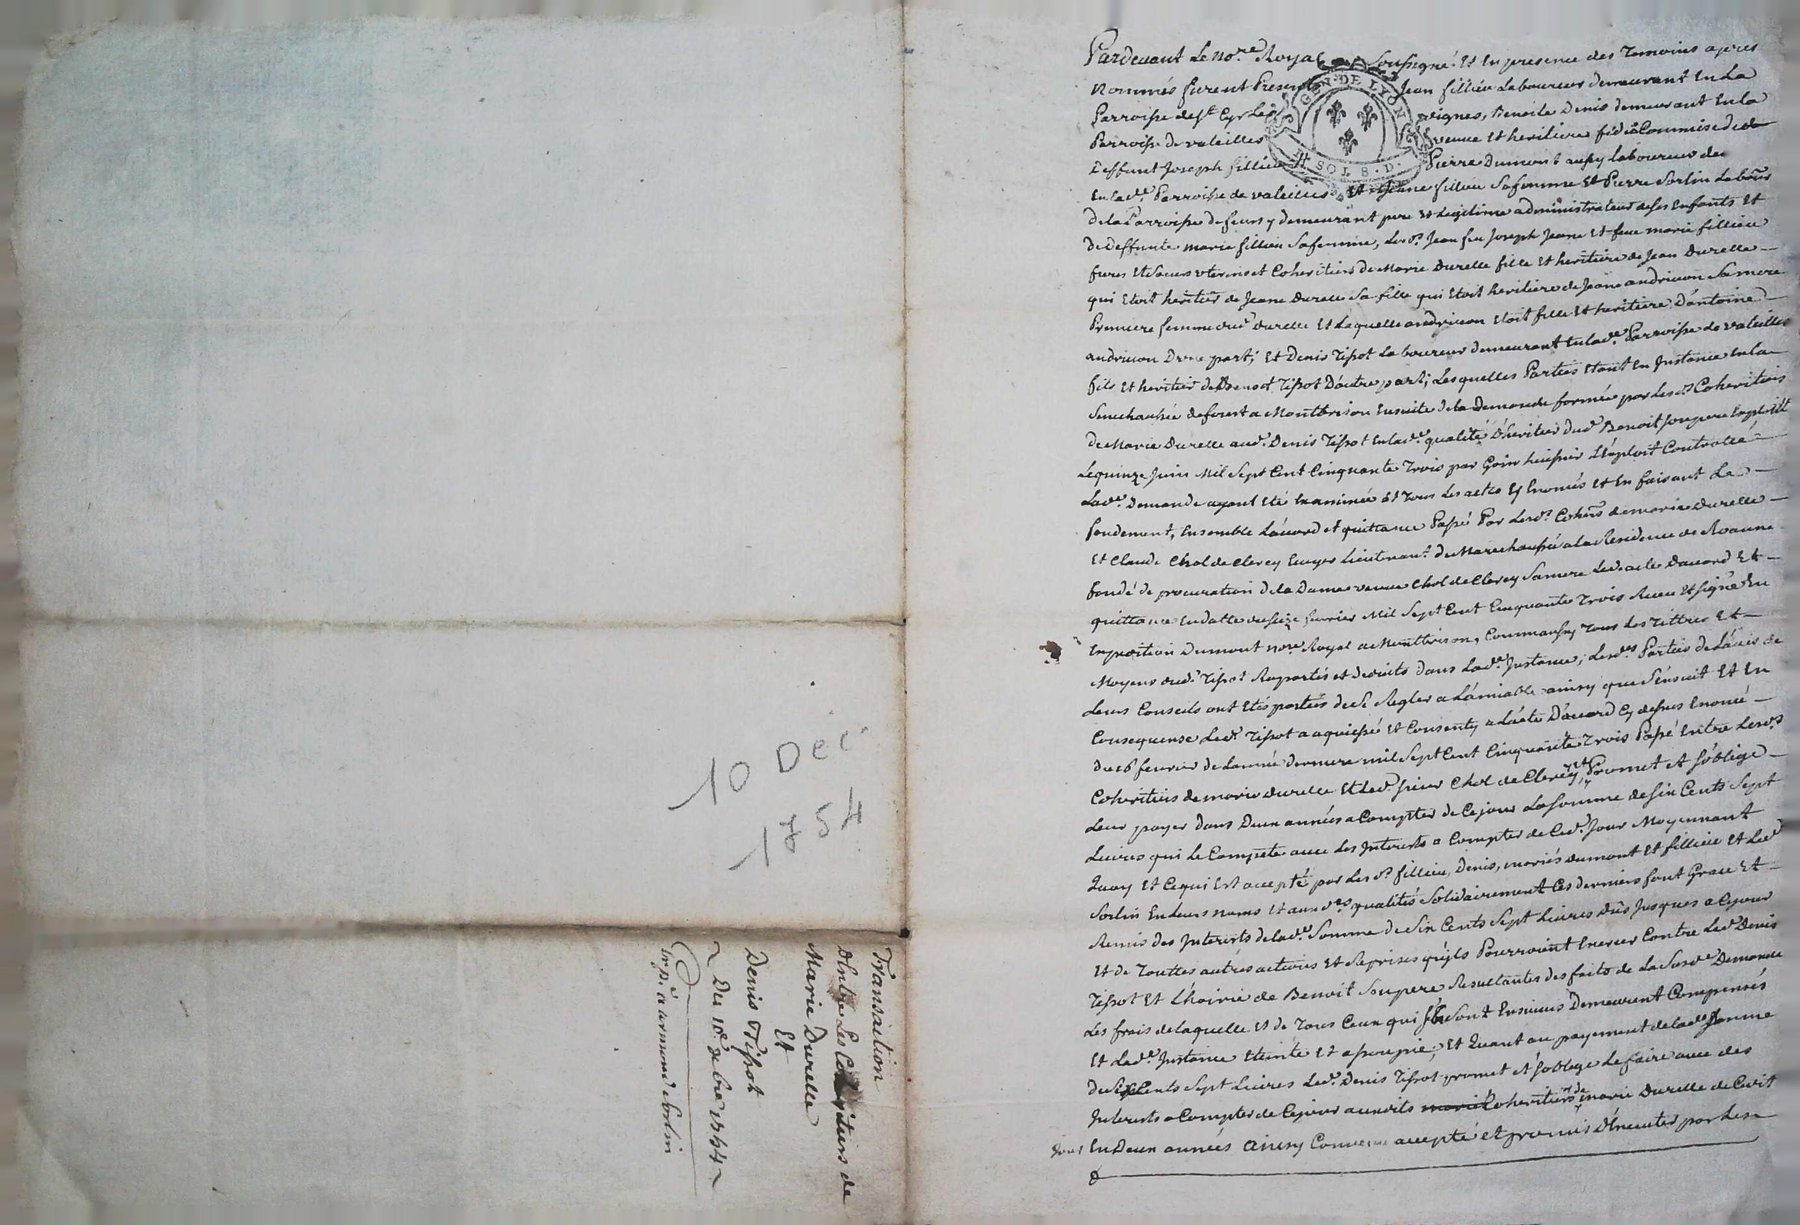 10 Dec
1754
Transaction
Entre Les Coheritiers de
Marie Durelle
Et
Denis Tissot
Du 10e. xbre 1754
Exp. a armand
Pardevant Le nore. Royal Soussigné Et En presence des Temoins apres
Nommés furent Presents Jean fillieu Laboureur demeurant En La
Parroisse de st. Cyr Les vignes, Benoite Denis demeurant En la
Parroisse de valeilles veuve Et heritiere fideicommise de
deffunt Joseph fillieu Pierre Dumont aussy Laboureur de
En lade. Parroisse de valeilles Et Jeane fillieu Sa femme Et Pierre Sorlin Labour.
de la Parroisse de feurs y demeurant pere Et Legitime administrateur de ses Enfants Et
De deffunte marie fillieu Sa femme, Lesds. Jean feu Joseph Jeane Et feue marie fillieu
freres Et Soeurs uterins et Coheritiers de Marie Durelle fille Et heritiere de Jean Durelle
qui Etoit heritier de Jeane Durelle Sa fille qui Etoit heritiere de Jeane andrieuon Sa mere
Premiere femme dud. durelle Et Laquelle andrieuon Etoit fille Et heritiere D'antoine
andrieuon D'une part; Et Denis Tissot Laboureur demeurant En lade. Parroisse de valeilles
fils Et heritier de Benoit Tissot D'autre part; Lesquelles Parties Etant En Instance En la
Senechaussée de forest a Montbrison Ensuite de la Demande formée par Lesds. Coheritiers
de Marie Durelle aud. Denis Tissot En lade. qualité D'heritier dud. Benoit Son pere Exploit
Le quinze Juin Mil Sept Cent Cinquante Trois par Goin huissier L'Exploit Controllé
Lade. Demande ayant Eté Examinée Et Tous Les actes Ey Enoncés Et En faisant Le
fondement, Ensemble L'acord et quittance Passé Par Lesds. Cohers. de marie Durelle
Et Claude Chol de Clercy Ecuyer Lieutenant de Marechaussée a la Residence de Roanne
fondé de procuration de la Dame veuve Chol de Clercy Sa mere Led. acte D'acord Et
quittance En datte du Seize fevrier Mil Sept Cent Cinquante Trois Receu Et Signé En
Expedition Dumont nore. Royal a Montbrison, Comm'aussy Tous Les Tittres Et
Moyens dud. Tissot Raportés et deduits dans Lade. Instance; Lesdes. Parties de L'avis de
Leurs Conseils ont Etés portées de Se Regler a L'amiable ainsy que S'ensuit Et En
Consequense Led. Tissot a aquiessé Et Consenty a L'acte D'acord Cy dessus Enoncé
du 16 fevrier de L'année derniere mil Sept Cent Cinquante Trois Passé Entre Lesds.
Coheritiers de marie durelle Et Led. sieur Chol de Clercy, Et Promet et S'oblige
Leur payer Dans Deux années a Compter de Ce jour La Somme de Six Cents Sept
Livres qui Le Compete avec Les Interests a Compter de Ced. Jour Moyennant
Quoy Et Ce qui Est accepté par Lesds. fillieu, Denis, mariés dumont Et fillieu Et Led.
Sorlin En Leurs noms Et auxdes. qualités Solidairement Ces derniers font Grace Et
Remis des Interests de lade. Somme de Six Cents Sept Livres Dûs Jusques a Ce jour
Et de Touttes autres actions Et Reprises qu'ils Pourroient Exercer Contre Led. Denis
Tissot Et L'hoirie de Benoit Son pere Resultantes des faits de La Susde. Demande
Les frais de laquelle Et de Tous Ceux qui S'en Sont Ensuivis Demeurent Compensés
Et Lade. Instance Eteinte Et assoupie; Et Quant au payement de lade. Somme
de Six Cents Sept Livres Led. Denis Tissot promet et S'oblige Le faire avec des
Interests a Compter de Ce jour auxdits Coheritiers de marie Durelle de Cuit
En Deux années Ainsy Convenu accepté et promis D'Executer par Les